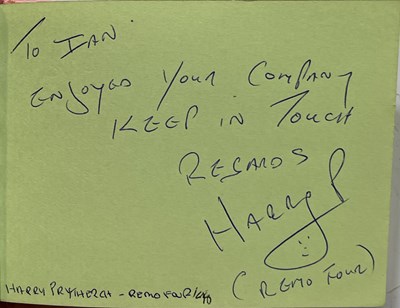 To IAN.
ENJOYED YOUR COMPANY
KEEP IN TOUCH
REGARDS
HARRY P
(REMO FOUR)
HARRY PRYTHERCH - REMO FOUR